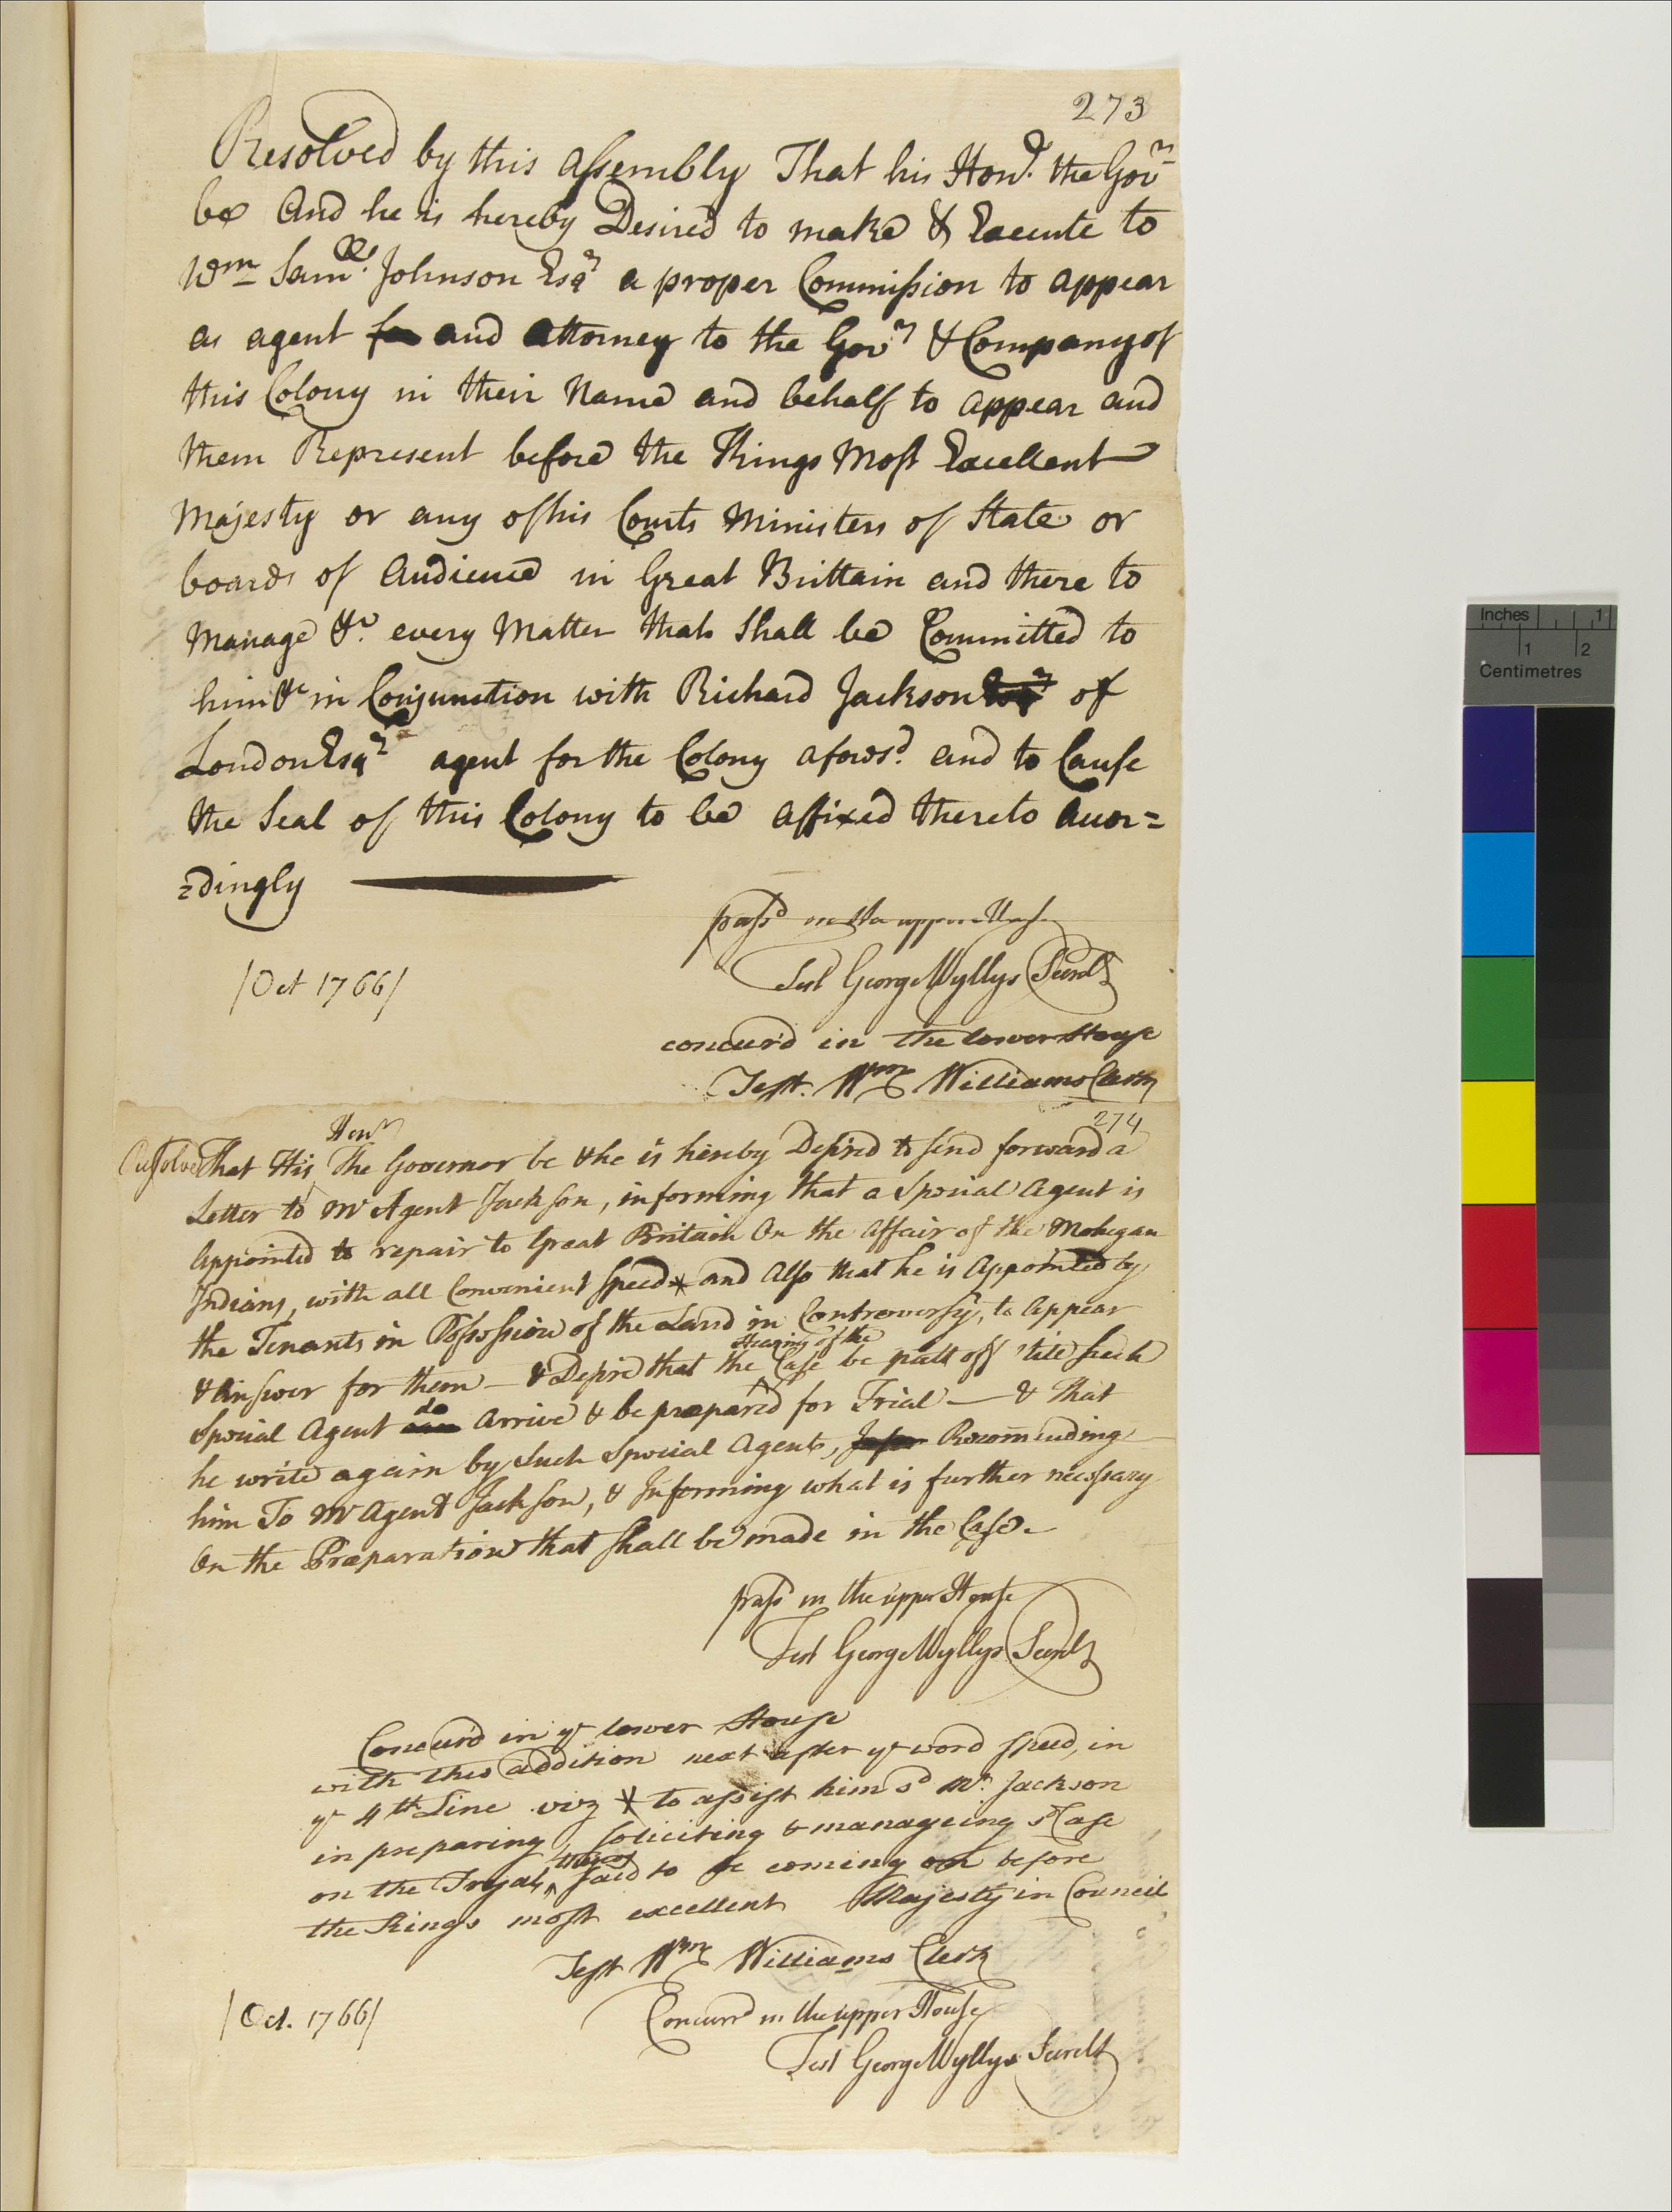 273
Resolved by this Assembly That his Honr. the Govr
be And he is hereby Desired to make & Execute to
Wm Samll. Johnson Esqr a proper Commission to appear
as agent and attorney to the Govr & Company of
this Colony in their Name and behalf to appear and
them Represent before the Kings Most Excellent
Majesty or any of his Courts Ministers of State or
boards of Audience in Great Brittain and there to
Manage &c. every Matter that Shall be Committed to
him &c in Conjunction with Richard Jackson Esqr of
London Esqr agent for the Colony aforesd. and to Cause
the Seal of this Colony to be affixed thereto accor=
=dingly
passd in the upper House
Test George Wyllys Secrety
/Oct 1766/
concur'd in the lower House
Test. Wm Williams Clerk
274
Honr
Resolved That His The Governor be & he is hereby Desired to send forward a
Letter to Mr Agent Jackson, informing that a Special Agent is
Appointed to repair to Great Britain On the Affair of the Mohegan
Indians, with all Convenient Speed * and Also that he is Appointed by
the Tenants in Possession of the Land in Controversy, to Appear
Hearing of the
& Answer for them — & Desire that the Case be putt off 'till such
do
Special Agent Arrive & be prepared for Trial — & That
he write again by such Special Agent, Recommending
him To Mr Agent Jackson, & Informing what is further necessary
On the Preparation that shall be made in the Case.
pass'd in the upper House
Test George Wyllys Secrety
Concur'd in ye lower House
with this addition next after ye word speed, in
ye 4th Line viz * to assist him sd Mr. Jackson
in preparing, soliciting & manageing sd Case
on the Tryal, said to be coming on before
the Kings most excellent Majesty in Council
Test Wm Williams Clerk
Concurrd in the upper House
/Oct. 1766/
Test George Wyllys Secrety
Inches 1
1 2
Centimetres